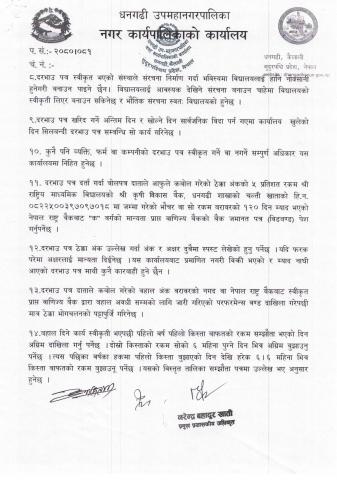 धनगढी उपमहानगरपालिका
नगर कार्यपालिकाको कार्यालय
प. सं.: -२०८०।०८१
च. नं. :-
धनगढी, कैलाली
सुदूरपश्चिम प्रदेश, नेपाल
८.दरभाउ पत्र स्वीकृत भएको संस्थाले संरचना निर्माण गर्दा भविस्यमा विद्यालयलाई हानि नोक्सानी
हुनेगरी बनाउन पाइने छैन । विद्यालयलाई आवश्यक देखिने संरचना बनाउन चाहेमा विद्यालयको
स्वीकृती लिएर बनाउन सकिनेछ र भौतिक संरचना स्वत: विद्यालयको हुनेछ ।
९.दरभाउ पत्र खरिद गर्ने अन्तिम दिन र खोल्ने दिन सार्वजनिक विदा पर्न गएमा कार्यालय खुलेको
दिन सिलवन्दी दरभाउ पत्र सम्वन्धि सो कार्य गरिनेछ ।
१०. कुनै पनि व्यक्ति, फर्म वा कम्पनीको दरभाउ पत्र स्वीकृत गर्ने वा नगर्ने सम्पुर्ण अधिकार यस
कार्यालयमा निहित हुनेछ ।
११. दरभाउ पत्र दर्ता गर्दा वोलपत्र दाताले आफुले कवोल गरेको ठेक्का अंकको ५ प्रतिशत रकम श्री
राष्ट्रिय माध्यमिक विद्यालयको श्री कृषि विकास बैंक, धनगढी शाखाको चल्ती खाताको हि.नं.
०८२२५००३९७०९७०१८ मा जम्मा गरेको भौचर वा सो रकम वरावरको १२० दिन म्याद भएको
नेपाल राष्ट्र बैंकबाट "क" वर्गको मान्यता प्राप्त वाणिज्य बैंकको बैंक जमानत पत्र (बिडवण्ड) पेश
गर्नुपर्नेछ ।
१२.दरभाउ पत्र ठेक्का अंक उल्लेख गर्दा अंक र अक्षर दुवैमा स्पस्ट लेखेको हुनु पर्नेछ । यदि फरक
परेमा अक्षरलाई मान्यता दिईनेछ । यस कार्यालयबाट प्रमाणित नगरी बिक्री भएको र म्याद नाघी
आएको दरभाउ पत्र माथी कुनै कारवाही हुने छैन ।
१३.दरभाउ पत्र दाताले कवोल गरेको वहाल अंक वरावरको नगद वा नेपाल राष्ट्र बैंकबाट स्वीकृत
प्राप्त वाणिज्य बैंक द्वारा वहाल अवधी सम्मको लागि जारी गरिएको परफरमेन्स वण्ड दाखिला गरेपछी
मात्र ठेक्का भोगचलनको पट्टापुर्जि गरिनेछ ।
१४.वहाल दिने कार्य स्वीकृती भएपछी पहिलो वर्ष पहिलो किस्ता वाफतको रकम सम्झौता भएको दिन
अग्रिम दाखिला गर्नु पर्नेछ । दोस्रो किस्ताको रकम सोको ६ महिना पुग्ने दिन भित्र अग्रिम बुझाउनु
पर्नेछ । त्यस पछिका वर्षका हकमा पहिलो किस्ता बुझाएको दिन देखि हरेक ६।६ महिना भित्र
किस्ता वाफतको रकम बुझाउनु पर्नेछ । यसको विस्तृत तालिका सम्झौता पत्रमा उल्लेख भए अनुसार
हुनेछ ।
नरेन्द्र बहादुर खाती
प्रमुख प्रशासकीय अधिकृत